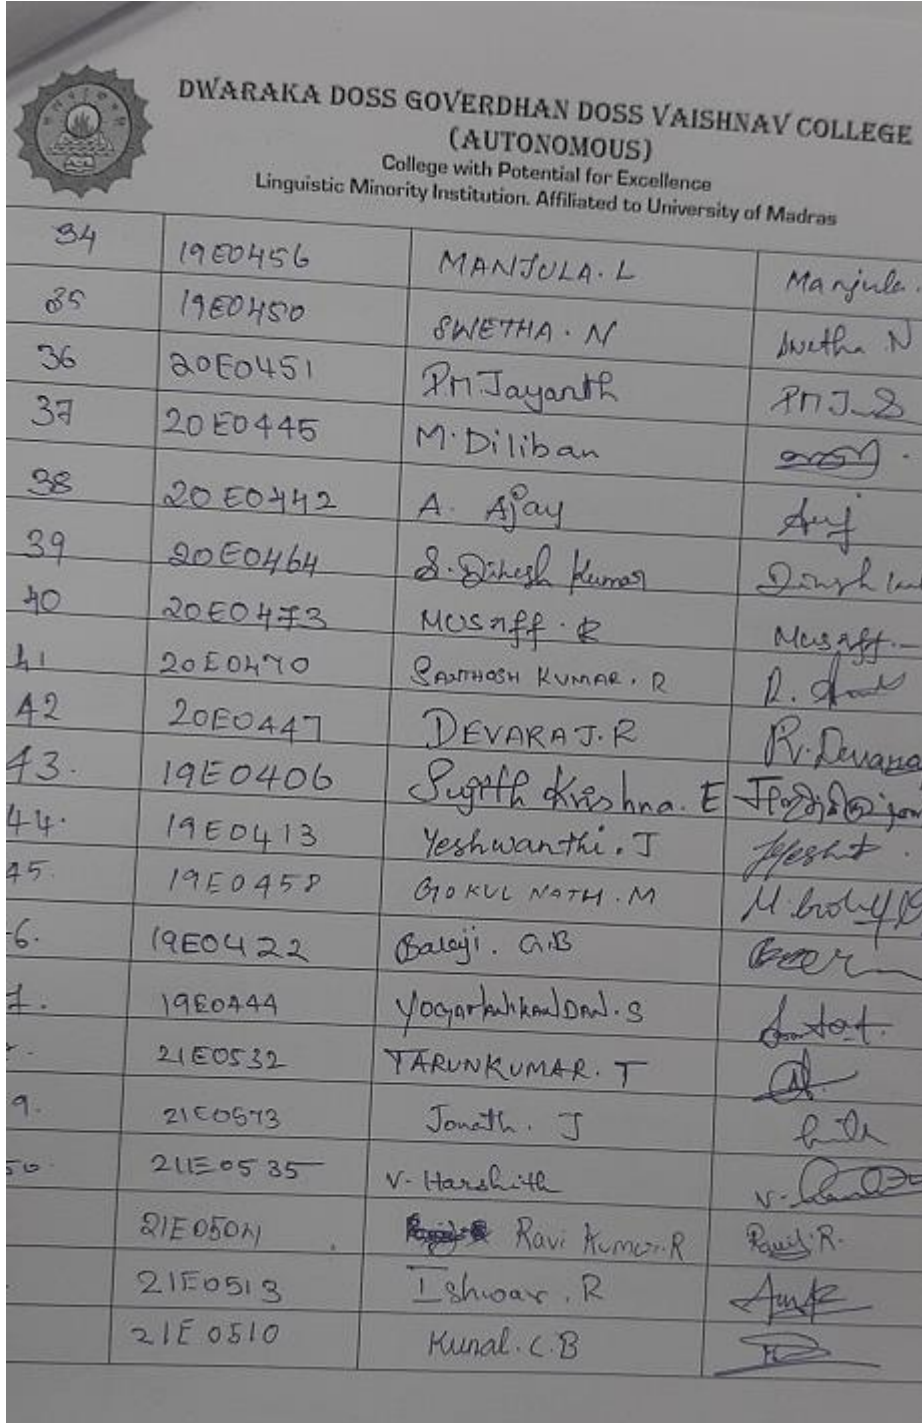 DWARAKA DOSS GOVERDHAN DOSS VAISHNAV COLLEGE
(AUTONOMOUS)
College with Potential for Excellence
Linguistic Minority Institution. Affiliated to University of Madras
34 19E0456 MANJULA. L Manjula.
35 19E0450 SWETHA. N Swetha N
36 20E0451 PM Jayanth PMJ
37 20E0445 M. Diliban
38 20E0442 A. Ajay
39 20E0464 S. Dinesh Kumar
40 20E0473 Musaff. R Musaff.
41 20E0470 SANTHOSH KUMAR. R R.
42 20E0447 DEVARAJ. R R. Devara
43. 19E0406 Sugith Krishna. E
44. 19E0413 Yeshwanthi. J
45. 19E0458 GOKUL NATH. M M.
6. 19E0422 Balaji. G.B
7. 19E0444 S
21E0532 TARUNKUMAR. T
9. 21E0573 Jonath. J
50. 21E0535 V. Harshith V.
21E0504 Ravi Kumar. R Ravi. R.
21E0513 Ishwar. R
21E0510 Kunal. C.B